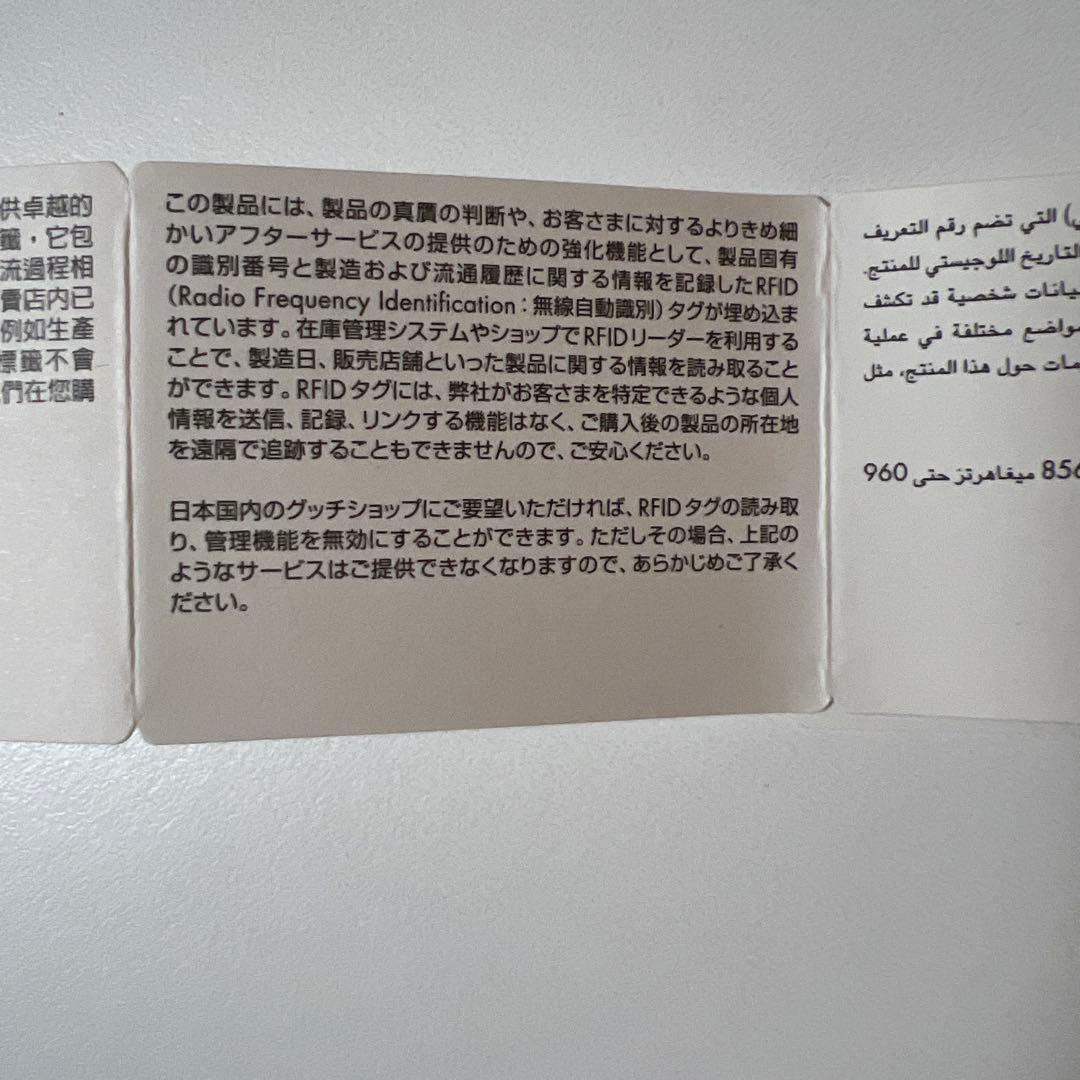 供卓越的
籤，它包
流過程相
費店內已
例如生產
標籤不會
們在您購
この製品には、製品の真贋の判断や、お客さまに対するよりきめ細
かいアフターサービスの提供のための強化機能として、製品固有
の識別番号と製造および流通履歴に関する情報を記録したRFID
（Radio Frequency Identification：無線自動識別）タグが埋め込ま
れています。在庫管理システムやショップでRFIDリーダーを利用する
ことで、製造日、販売店舗といった製品に関する情報を読み取ること
ができます。RFIDタグには、弊社がお客さまを特定できるような個人
情報を送信、記録、リンクする機能はなく、ご購入後の製品の所在地
を遠隔で追跡することもできませんので、ご安心ください。
日本国内のグッチショップにご要望いただければ、RFIDタグの読み取
り、管理機能を無効にすることができます。ただしその場合、上記の
ようなサービスはご提供できなくなりますので、あらかじめご了承く
ださい。
التي تضم رقم التعريف
التاريخ اللوجيستي للمنتج.
بيانات شخصية قد تكشف
مواضع مختلفة في عملية
حول هذا المنتج، مثل
856 ميغاهرتز حتى 960